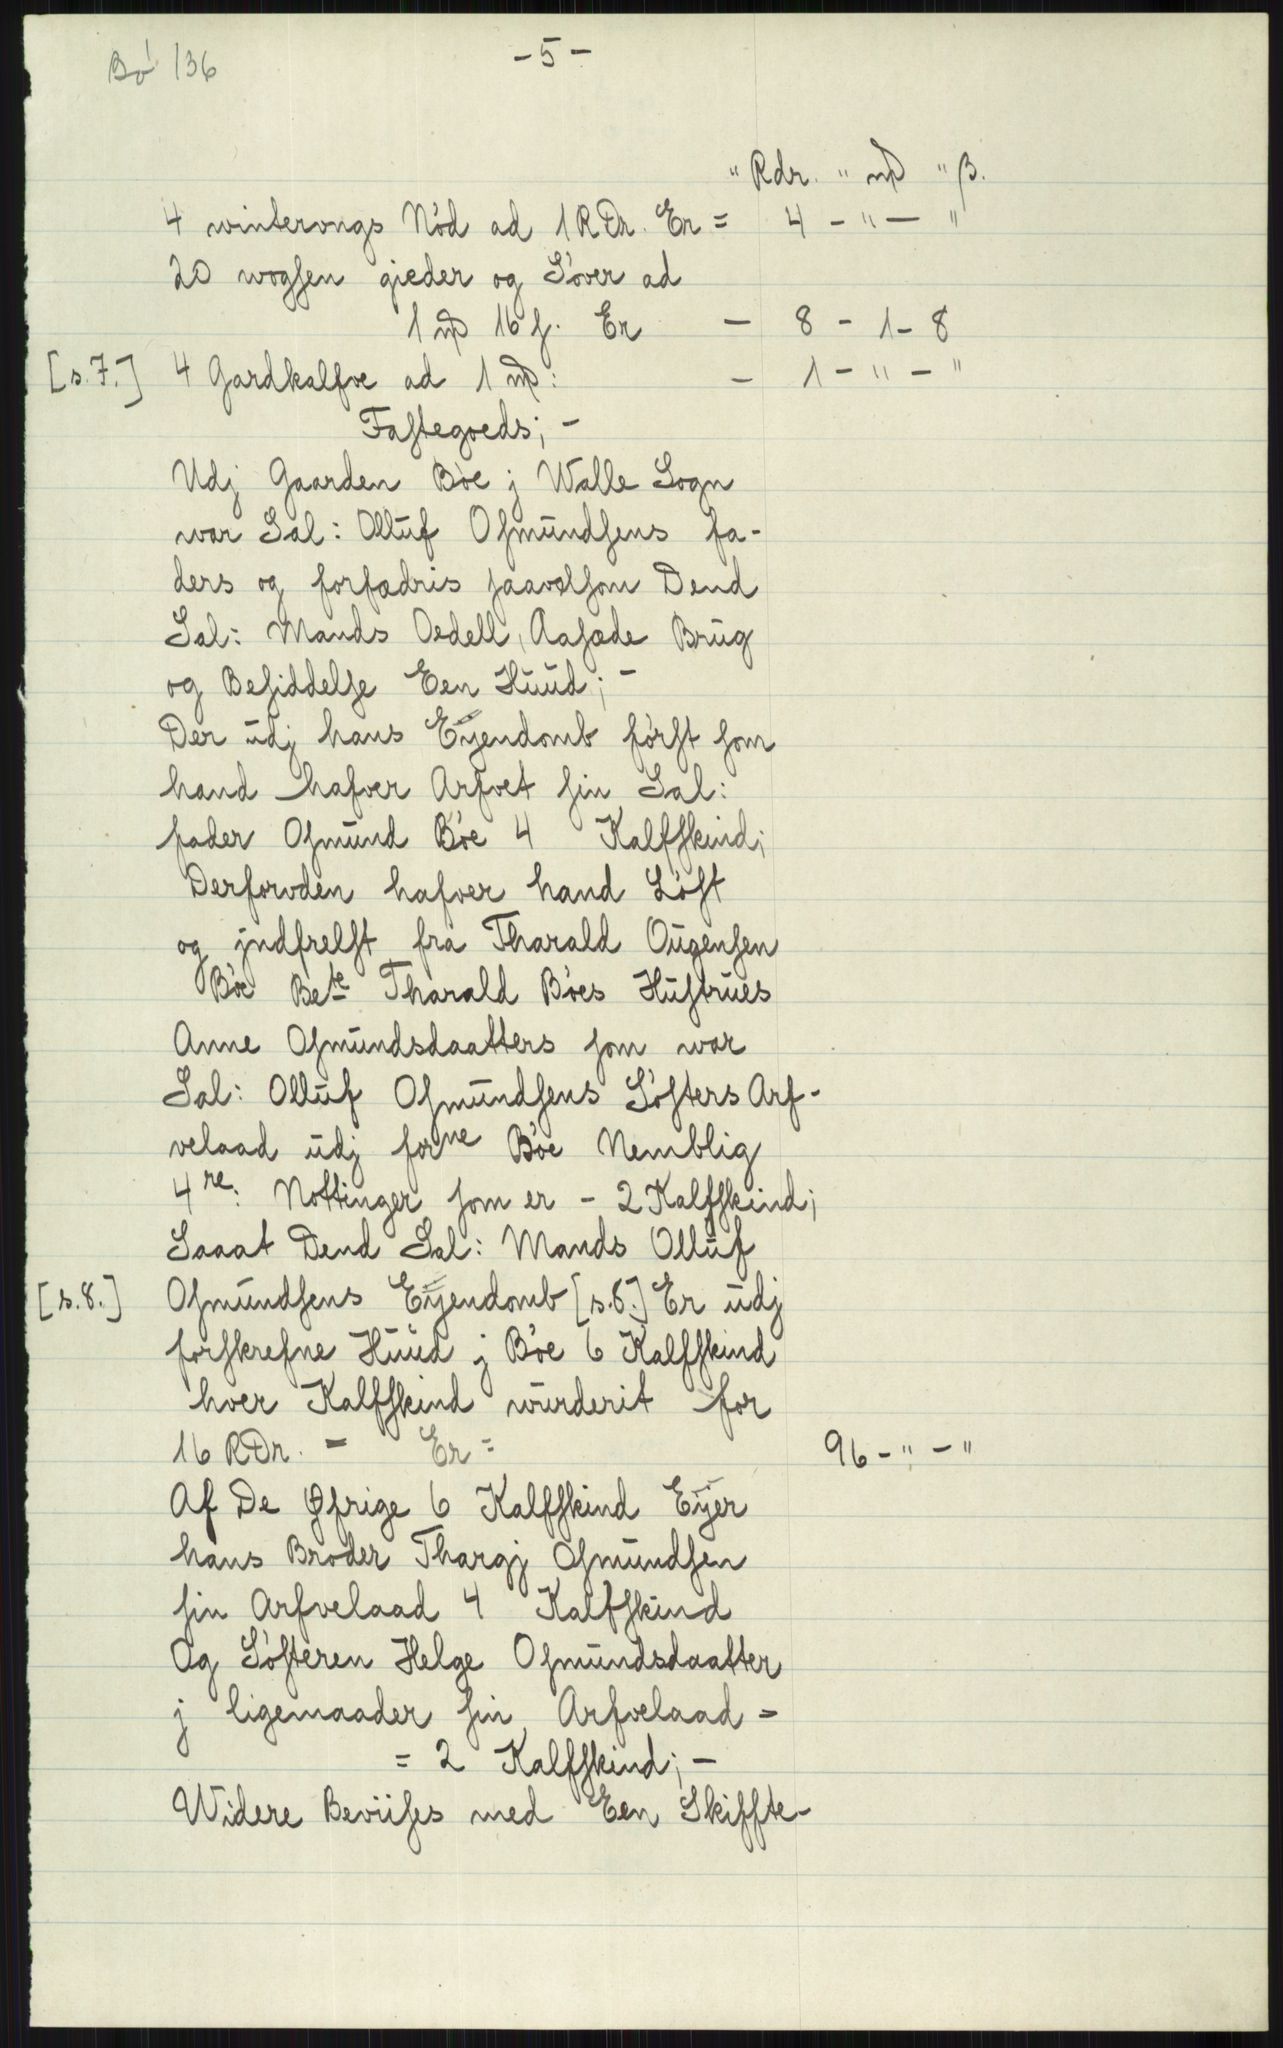 Bø 136
- 5 -
" Rdr. " mƿ " β.
4 winterongs Nød ad 1 RDr. Er = 4 - " - "
20 wogsen gieder og Søver ad
1 mƿ 16 s. Er - 8 - 1 - 8
[s.7.] 4 Gardkalfve ad 1 mƿ: - 1 - " - "
Fastegoeds; -
Udj Gaarden Bøe j Walle Sogn
war Sal: Olluf Osmundsens fa-
ders og forfædris saavelsom Dend
Sal: Mands Oedell, Aasæde Brug
og Besiddelse Een Huud; -
Der udj hans Eyendomb først som
hand hafver Arfvet sin Sal:
fader Osmund Bøe 4 Kalfskind;
Derforuden hafver hand Løst
og jndfrelst fra Tharald Ougensen
Bøe Bete Tharald Bøes Hustrues
Anne Osmundsdaatters som war
Sal: Olluf Osmundsens Søsters Arf-
velaad udj forne Bøe Nemblig
4re: Nottinger som er - 2 Kalfskind;
Saaat Dend Sal: Mands Olluf
[s.8.] Osmundsens Eyendomb [s.6.] Er udj
forskrefne Huud j Bøe 6 Kalfskind
hver Kalfskind wurderit for
16 RDr. - Er = 96 - " - "
Af De Øfrige 6 Kalfskind Eyer
hans Broder Thargj Osmundsen
sin Arfvelaad 4 Kalfskind
Og Søsteren Helge Osmundsdaatter
j ligemaader sin Arfvelaad =
= 2 Kalfskind; -
Widere Beviises med Een Skiffte-